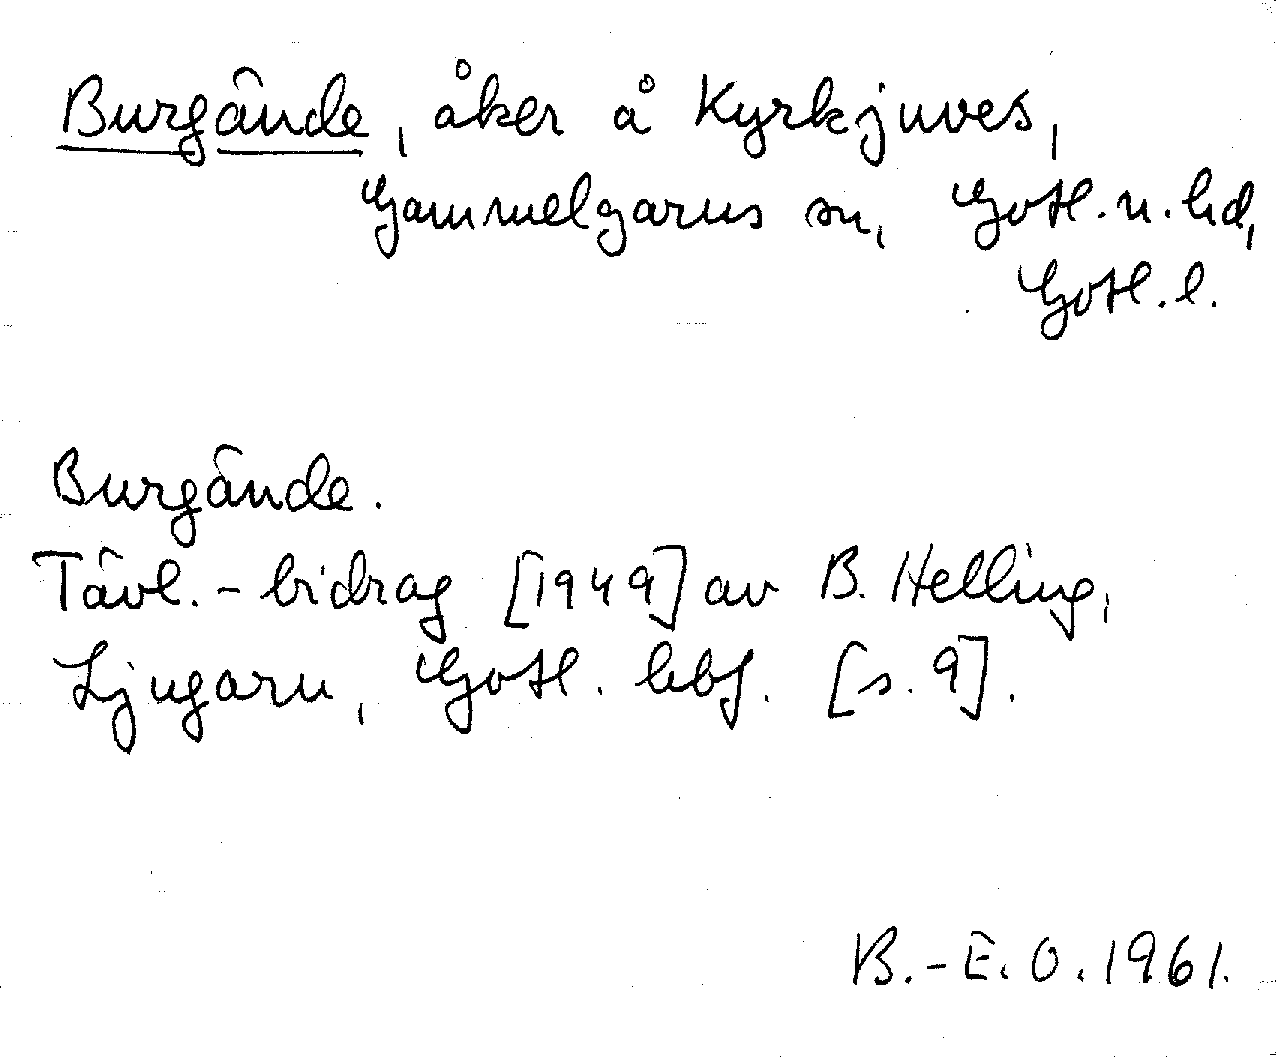 Burgände, åker å Kyrkjuves,
Gammelgarns sn, Gotl. n. hd,
Gotl. l.
Burgände.
Tävl.-bidrag [1949] av B. Helling,
Ljugarn, Gotl. hbf. [s. 9].
B.-E. O. 1961.